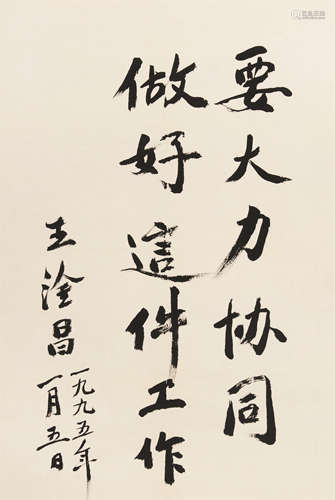 要大力协同
做好這件工作
王淦昌
一九九五年
一月五日